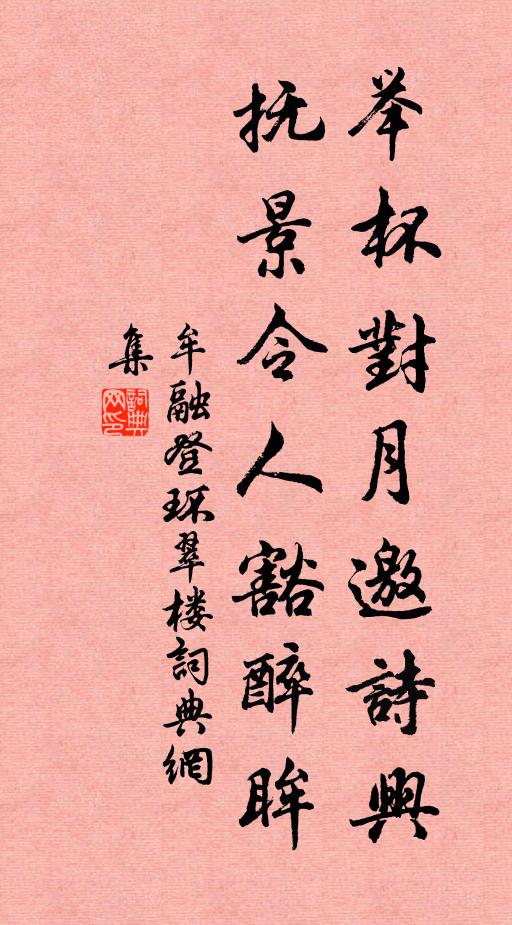 举杯對月邀詩興
抚景令人豁醉眸
牟融登环翠楼詞典網
集
詞典网印